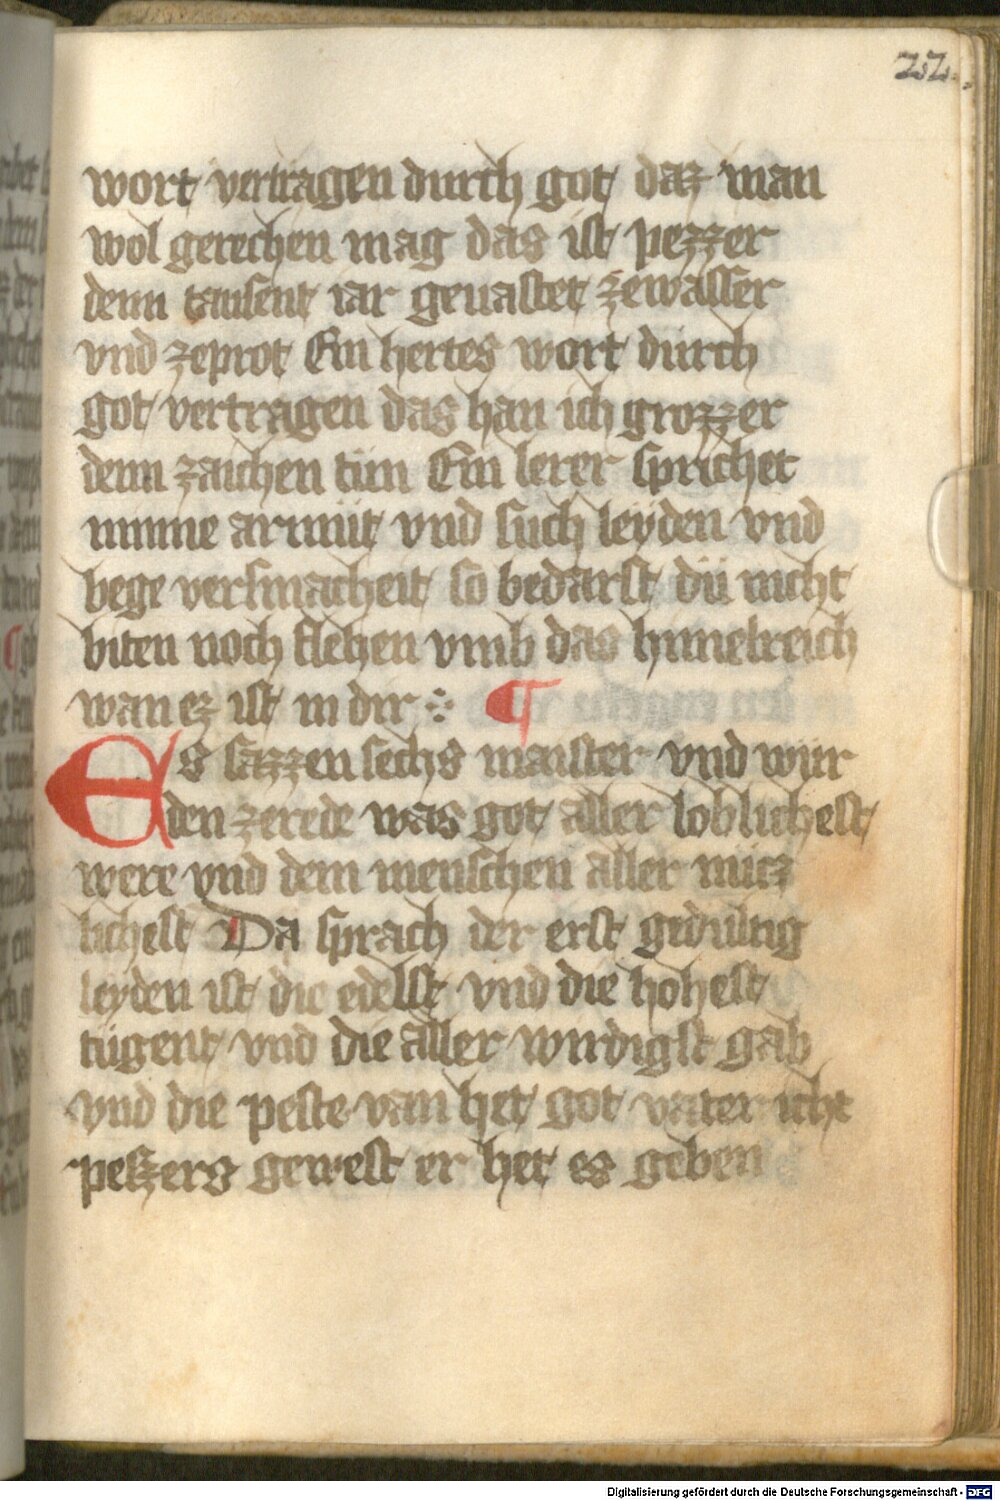 22.
wort vertragen durch got daz man
wol gerechen mag das ist pezzer
denn tausent iar geuastet zewasser
vnd zeprot Ein hertes wort durch
got vertragen das han ich grozzer
denn zaichen tün Ein lerer sprichet
minne armüt vnd süch leyden vnd
bege versmacheit so bedarft dü nicht
biten noch flehen vmb das himelreich
wan ez ist in dir ¶
Es sazzen sechs maister vnd wur
den zerede was got aller loblichest
were vnd dem menschen aller nücz
lichest Da sprach der erst gedultig
leyden ist die edelst vnd die hohest
tugent vnd die aller wirdigst gab
vnd die peste wan het got vater icht
peszers gewest er het es geben
Digitalisierung gefördert durch die Deutsche Forschungsgemeinschaft - DFG